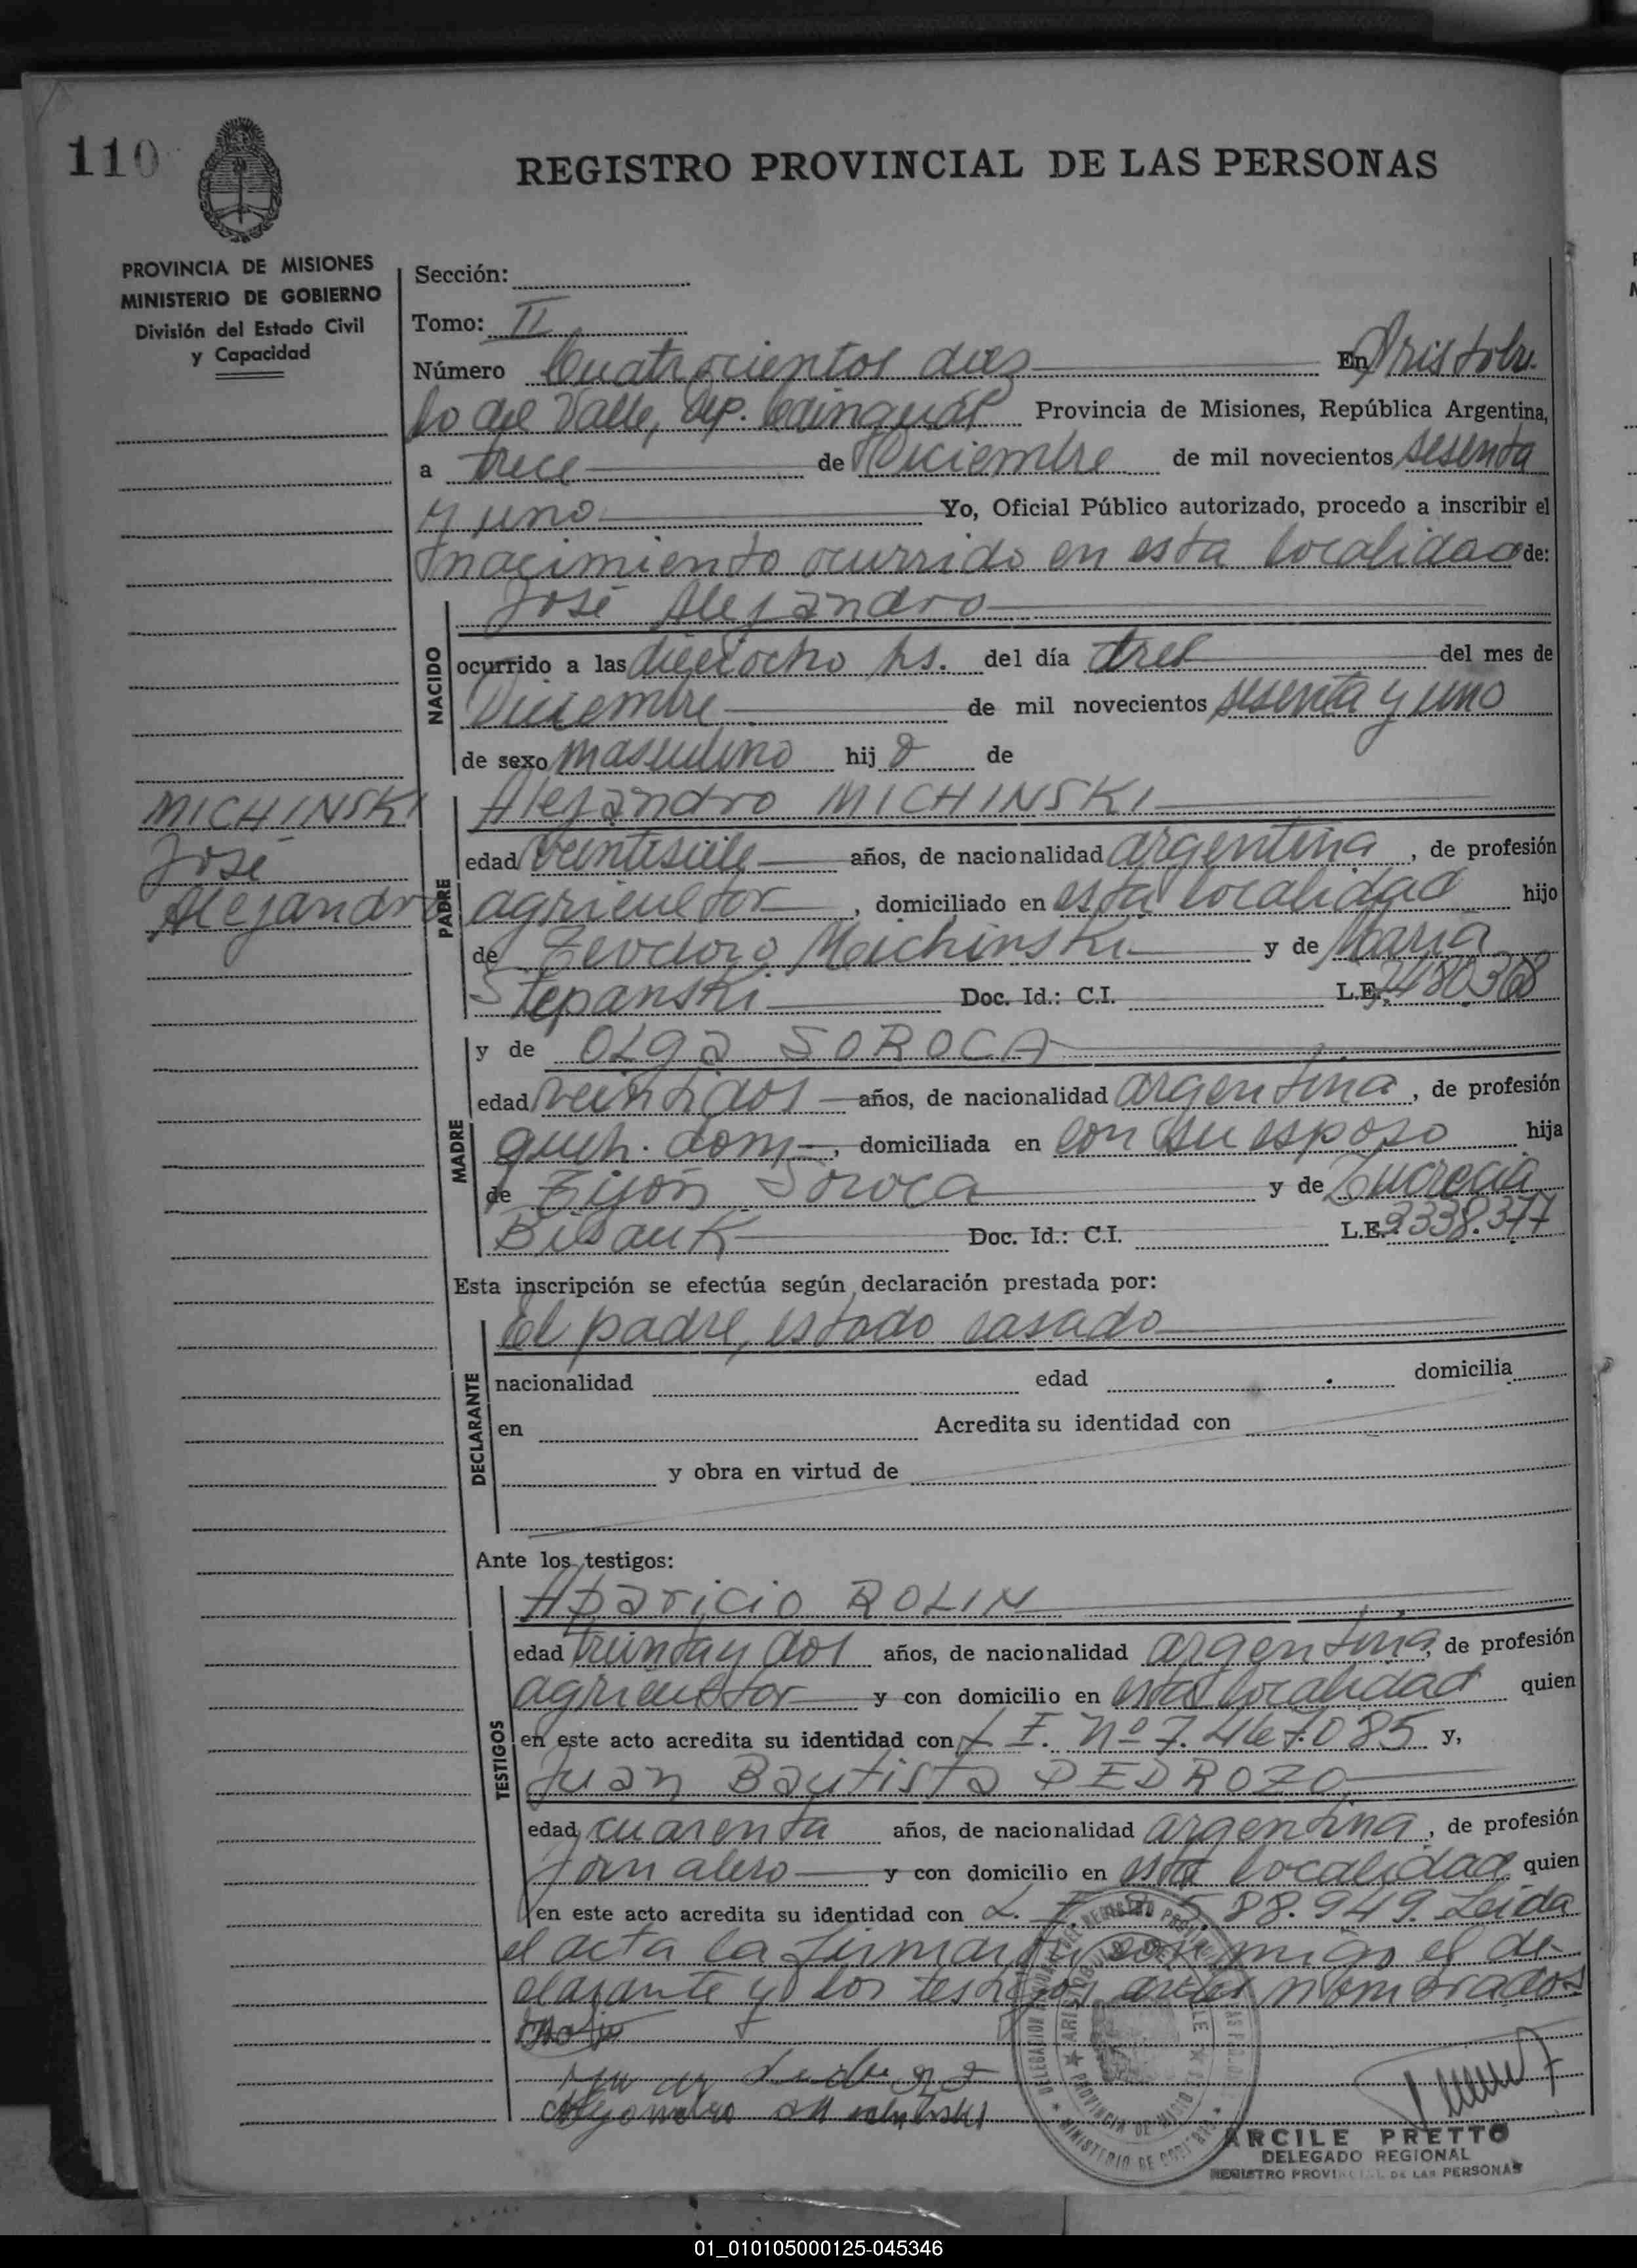 110
REGISTRO PROVINCIAL DE LAS PERSONAS
PROVINCIA DE MISIONES
MINISTERIO DE GOBIERNO
División del Estado Civil
y Capacidad
Sección:
Tomo: II
Número Cuatrocientos diez En Aristóbu-
lo del Valle, Dep. Cainguás Provincia de Misiones, República Argentina,
a trece de Diciembre de mil novecientos sesenta
y uno Yo, Oficial Público autorizado, procedo a inscribir el
nacimiento ocurrido en esta localidad de:
NACIDO
José Alejandro
ocurrido a las dieciocho hs. del día tres del mes de
Diciembre de mil novecientos sesenta y uno
de sexo masculino hijo de
MICHINSKI
José
Alejandro
PADRE
Alejandro MICHINSKI
edad veintisiete años, de nacionalidad argentina, de profesión
agricultor, domiciliado en esta localidad hijo
de Teodoro Michinski y de María
Stepanski Doc. Id.: C.I. L.E. 7480368
MADRE
y de Olga SOROCA
edad veintidos años, de nacionalidad argentina, de profesión
queh. dom., domiciliada en con su esposo hija
de Soroca y de Lucrecia
Doc. Id.: C.I. L.E. 2.338.377
Esta inscripción se efectúa según declaración prestada por:
DECLARANTE
El padre, estado casado
nacionalidad edad domicilia
en Acredita su identidad con
y obra en virtud de
Ante los testigos:
TESTIGOS
Aparicio ROLIN
edad treinta y dos años, de nacionalidad argentina, de profesión
agricultor y con domicilio en esta localidad quien
en este acto acredita su identidad con L. E. Nº 7.467.085 y,
Juan Bautista PEDROZO
edad cuarenta años, de nacionalidad argentina, de profesión
Jornalero y con domicilio en esta localidad quien
en este acto acredita su identidad con L. E. 88.949. Leida
el acta la firman conmigo el de-
clarante y los testigos antes nombrados
ARCILE PRETTO
DELEGADO REGIONAL
REGISTRO PROVINCIAL DE LAS PERSONAS
01_010105000125-045346